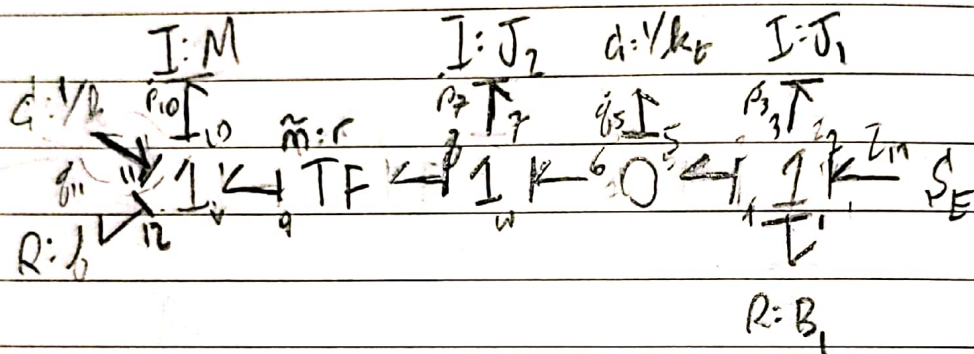 I:M I:J₂ C:1/kₜ I:J₁
C:1/k p₁₀ 10 m̃:r p₇ 7 q₅ 5 p₃ 3 2
q₁₁ 11 1 TF 8 1 6 0 4 1 τᵢₙ S_E
R:b 12 v 9 w 1
R:B₁